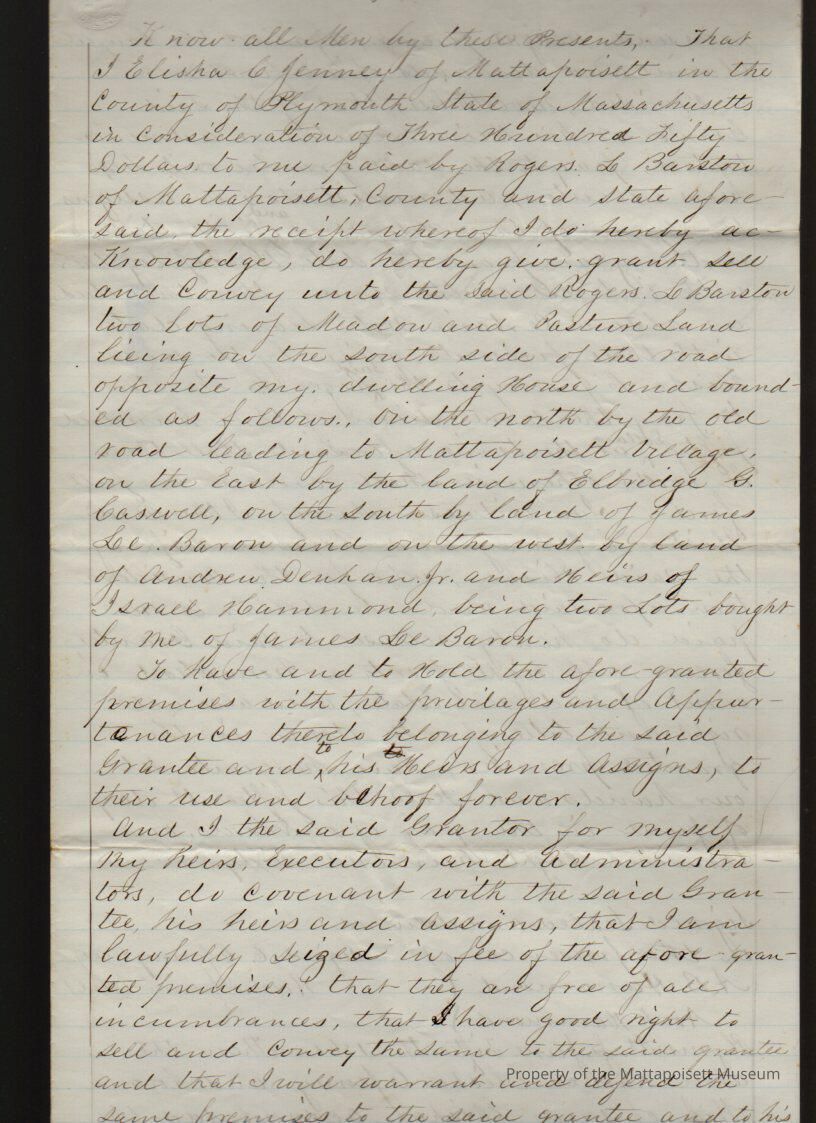 Know all Men by these Presents, That
I Elisha C Jenney of Mattapoisett in the
County of Plymouth State of Massachusetts
in Consideration of Three Hundred Fifty
Dollars. to me paid by Rogers. L Barstow
of Mattapoisett, County and State afore-
said, the receipt whereof I do hereby ac-
Knowledge, do hereby give, grant sell
and Convey unto the said Rogers. L Barstow
two Lots of Meadow and Pasture Land
lieing on the South side of the road
opposite my. dwelling House and bound-
ed as follows., on the north by the old
road leading to Mattapoisett Village,
on the East by the land of Elbridge G.
Caswell, on the South by land of James
Le. Baron and on the west. by land
of Andrew. Denham. Jr. and Heirs of
Israel Hammond, being two Lots bought
by me of James Le Baron.
To Have and to Hold the afore-granted
premises with the privilages and Appur-
tenances thereto belonging to the said
Grantee and to his Heirs and Assigns, to
their use and behoof forever.
And I the said Grantor for myself
my heirs, Executors, and administra-
tors, do covenant with the said Gran-
tee, his heirs and assigns, that I am
lawfully seized in fee of the afore-gran-
ted premises, that they are free of all
incumbrances, that I have good right to
sell and convey the same to the said grantee
and that I will warrant and defend the
same premises to the said grantee and to his
Property of the Mattapoisett Museum